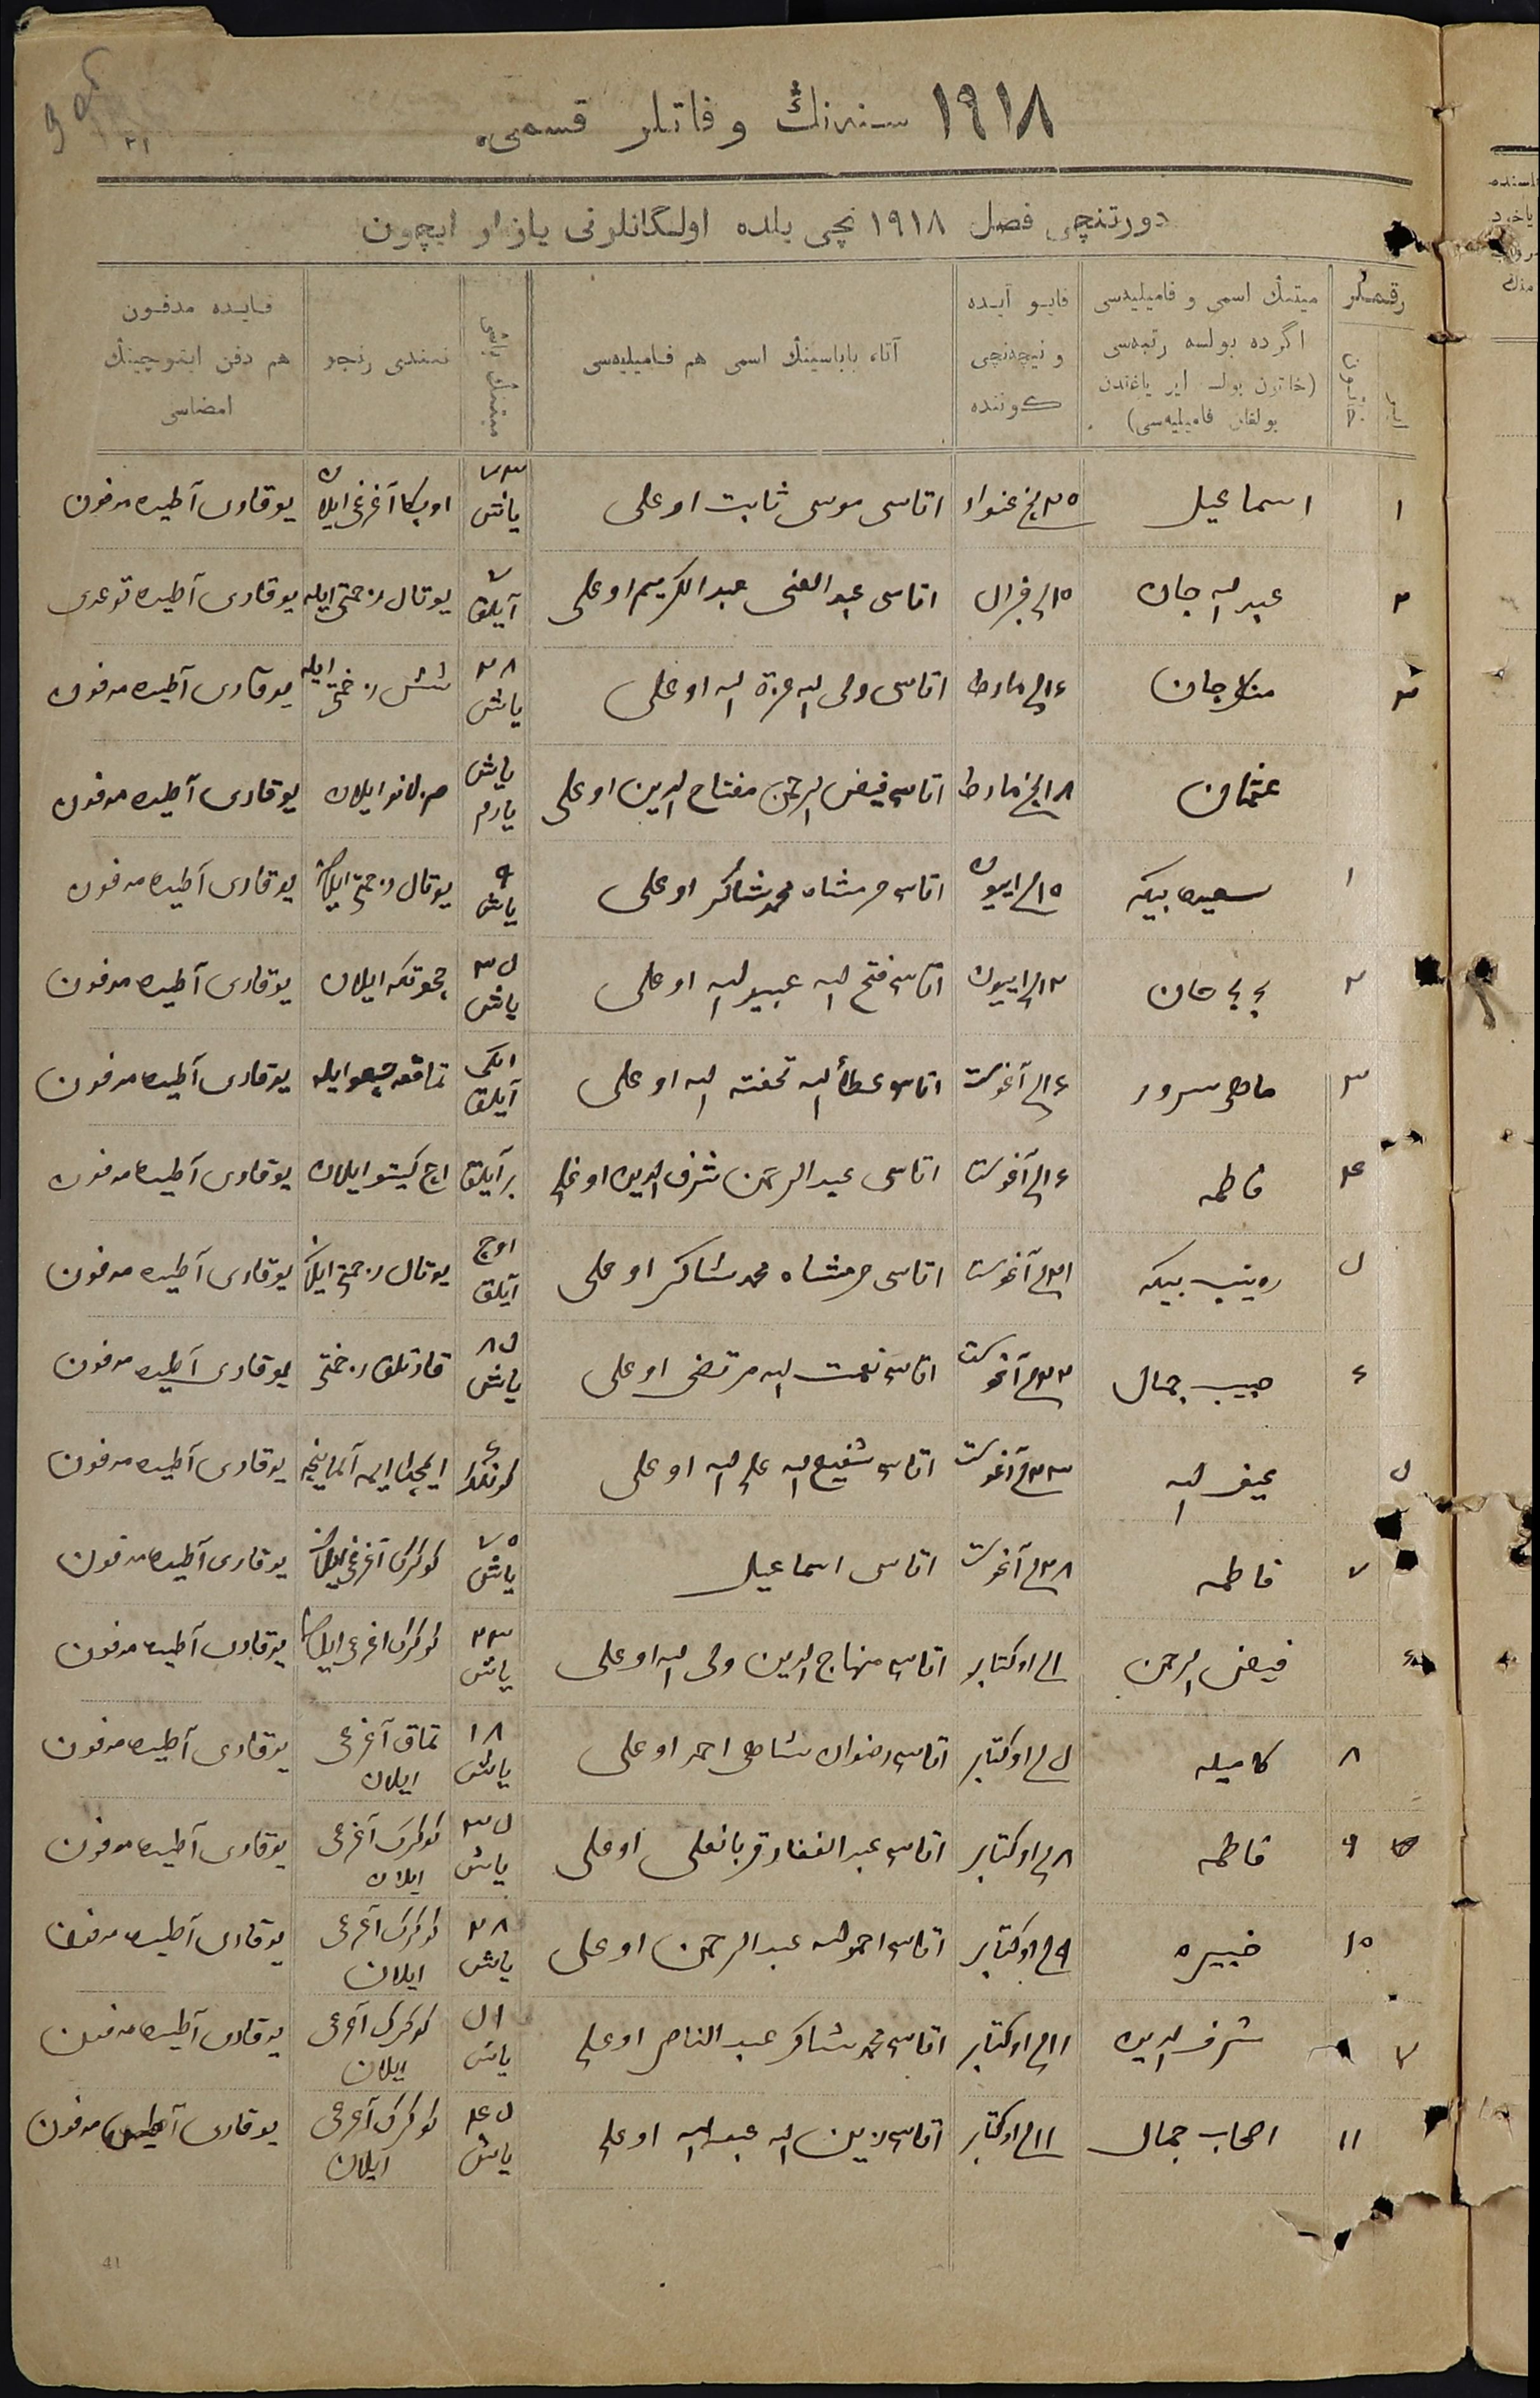 ١٩١٨ سنه‌نڭ وفاتلر قسمی.
٢١
دورتنچی فصل ١٩١٨ نچی یلده اولگانلرنی یازار ایچون
رقملر
ایر
خاتون
میتنڭ اسمی و فامیلیه‌سی اگرده بولسه رتبه‌سی (خاتون بولسه ایر یاغندن بولغان فامیلیه‌سی)
قایو آیده و نیچه‌نچی کوننده
آتاء باباسینڭ اسمی هم فامیلیه‌سی
میتنڭ یاشی
نیندی رنجو
قایده مدفون هم دفن ایتوچینڭ امضاسی
١ اسماعیل ٢٥ نچی غنوار اتاسی موسی ثابت اوغلی ٧٣ یاش اوبکا آغرغی ایلان یوقاری آطیده مدفون
٢ عبد الله جان ١٥ نچی فبرال اتاسی عبد الغنی عبد الکریم اوغلی ٧ آیلق یوتال زحمتی ایله یوقاری آطیده
٣ منلا جان ١٦ نچی مارط اتاسی ولی الله عزة الله اوغلی ٢٨ یاش شش زحمتی ایله یوقاری آطیده مدفون
عثمان ١٨ نچی مارط اتاسی فیض الرحمن مفتاح الدین اوغلی یاش یارم ایلان یوقاری آطیده مدفون
١ سعیده بیکه ١٥ نچی اییون اتاسی محمد شاکر اوغلی ٩ یاش یوتال زحمتی ایلان یوقاری آطیده مدفون
٢ جان ١٢ نچی اییون اتاسی فتح الله عبید الله اوغلی ٣٥ یاش چحوتکه ایلان یوقاری آطیده مدفون
٣ ماهی سرور ١٦ نچی آغوست اتاسی عطاء الله تحفة الله اوغلی ایکی آیلق ایله یوقاری آطیده مدفون
٤ فاطمه ١٦ نچی آغوست اتاسی عبد الرحمن شرف الدین اوغلی بر آیلق اچ کیتو ایلان یوقاری آطیده مدفون
٥ زینب بیکه ٢١ نچی آغوست اتاسی محمد شاکر اوغلی اوچ آیلق یوتال زحمتی ایلان یوقاری آطیده مدفون
٦ حبیب جمال ٢٢ نچی آغوست اتاسی نعمت الله مرتضی اوغلی ٨٥ یاش قارتلق زحمتی یوقاری آطیده مدفون
٥ ٢٣ نچی آغوست اتاسی شفیع الله علی الله اوغلی ٦ کونلک یوقاری آطیده مدفون
٧ فاطمه ٢٨ نچی آغوست اتاسی اسماعیل ٧٥ یاش کوکرک آغرغی ایلان یوقاری آطیده مدفون
٦ فیض الرحمن ١ نچی اوکتابر اتاسی منهاج الدین ولی الله اوغلی ٢٣ یاش کوکرک آغرغی ایلان یوقاری آطیده مدفون
٨ کامیله ٥ نچی اوکتابر اتاسی رضوان احمد اوغلی ١٨ یاش تماق آغرغی ایلان یوقاری آطیده مدفون
٩ فاطمه ٨ نچی اوکتابر اتاسی عبد الغفار قربانعلی اوغلی ٣٥ یاش کوکرک آغرغی ایلان یوقاری آطیده مدفون
١٠ خبیره ٩ نچی اوکتابر اتاسی عبد الرحمن اوغلی ٢٨ یاش کوکرک آغرغی ایلان یوقاری آطیده مدفون
٧ شرف الدین ١١ نچی اوکتابر اتاسی محمد شاکر عبد الناصر اوغلی ٥١ یاش کوکرک آغرغی ایلان یوقاری آطیده مدفون
١١ اصحاب جمال ١١ نچی اوکتابر اتاسی زین الله عبد الله اوغلی ٤٥ یاش کوکرک آغرغی ایلان یوقاری آطیده مدفون
41